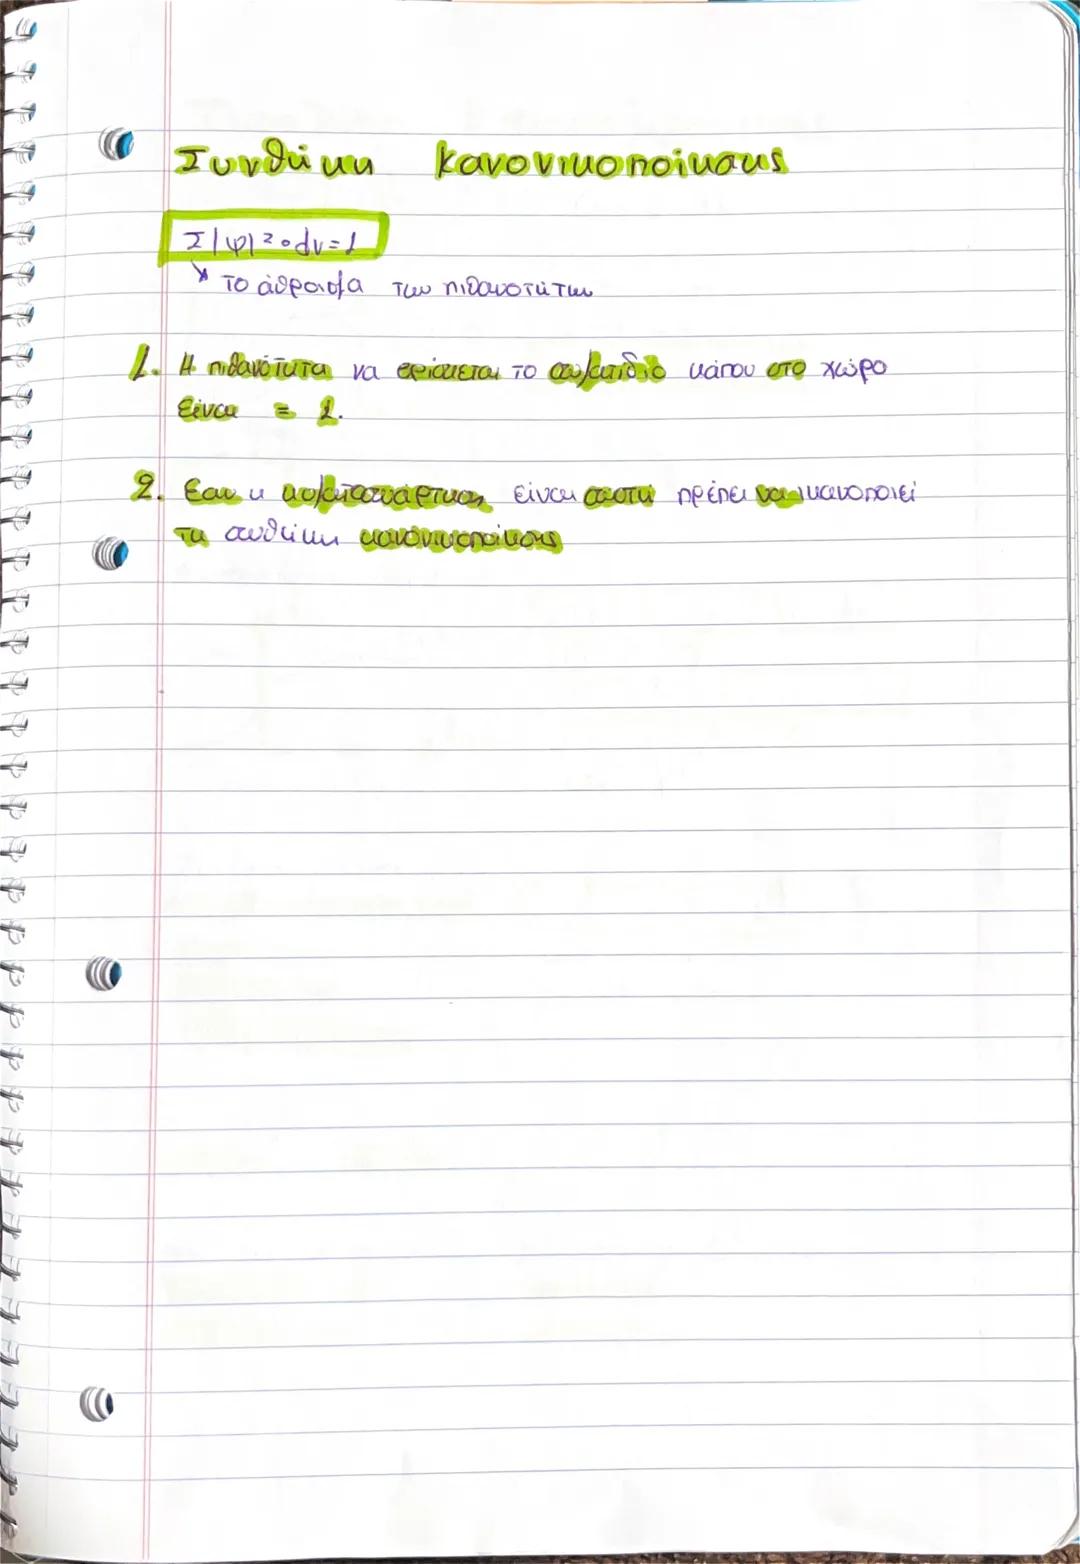 Συνθήκη κανονικοποίησης
Σ|ψ|²∘dv=1
Το άθροισμα των πιθανοτήτων
1. Η πιθανότητα να βρίσκεται το σωματίδιο κάπου στο χώρο
είναι = 1.
2. Εαν η κυματοσυνάρτηση είναι σωστή πρέπει να ικανοποιεί
τη συνθήκη κανονικοποίησης